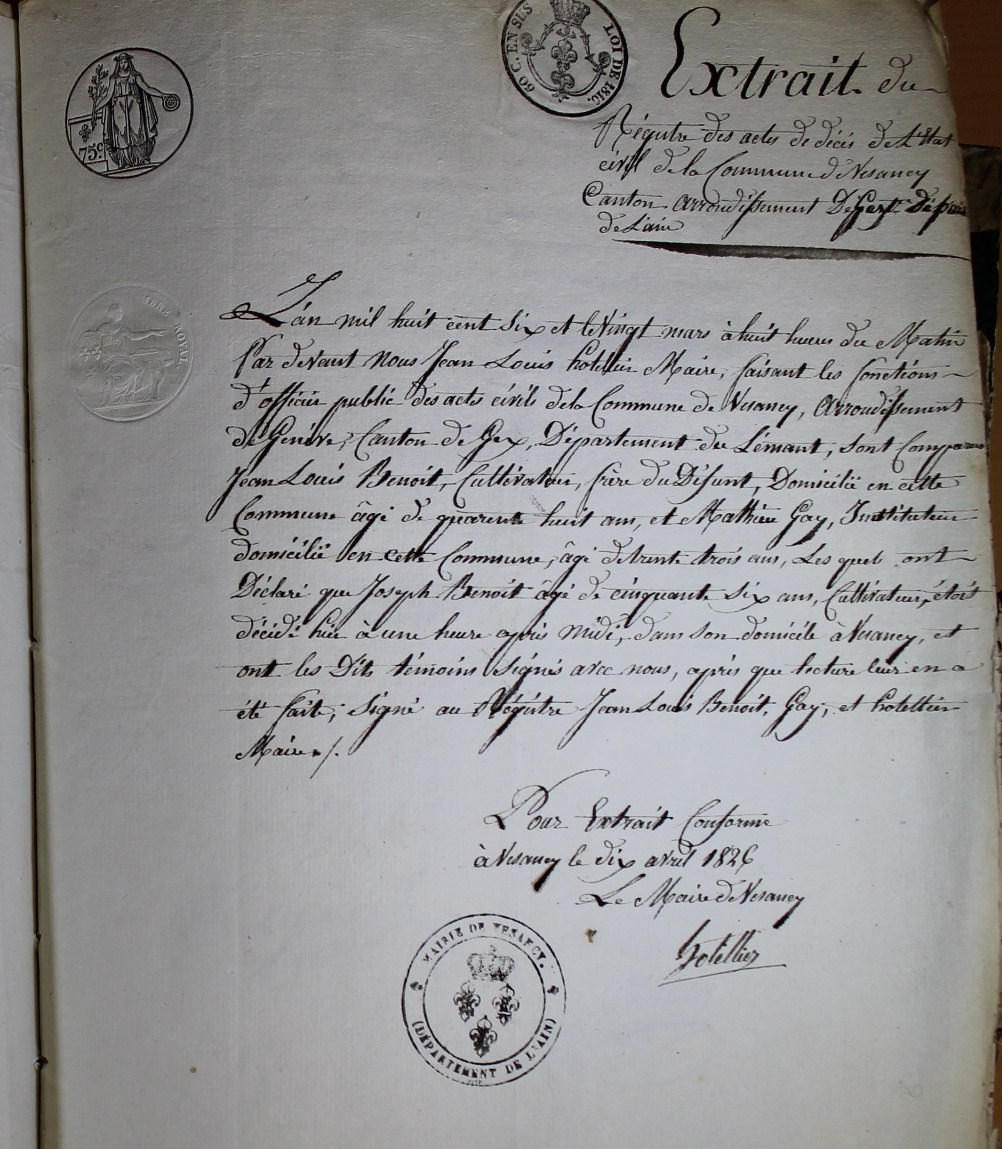 60 C. EN SUS
LOI DE 1816.
75c
TIMBRE ROYAL
Extrait du
Régistre des actes de décés de L'Etat
civil de la Commune de Vesancy
Canton arrondissement De Gex
de L'ain
L'an mil huit cent Six et le Vingt mars à huit heures du Matin
Par devant Nous Jean Louis hotellier Maire, faisant les fonctions
d'officier public des actes civils de la Commune de Vesancy, Arrondissement
de Genève, Canton de Gex, Département du Lémant, sont Comparus
Jean Louis Benoit, Cultivateur, frère du Défunt, Domicilié en cette
Commune âgé de quarente huit ans, et Mathieu Gay, Instituteur
domicilié en cette Commune, âgé de trente trois ans, Les quels ont
Déclaré que Joseph Benoit âgé de cinquante six ans, Cultivateur, étoit
décédé hier à une heure après Midi, dans son domicile à Vesancy, et
ont les Dits témoins Signés avec nous, après que lecture leur en a
été faite, Signé au Régistre Jean Louis Benoit, Gay, et hotellier
Maire /.
Pour Extrait Conforme
à Vesancy le dix avril 1826
Le Maire de Vesancy
hotellier
MAIRIE DE VESANCY.
(DÉPARTEMENT DE L'AIN)